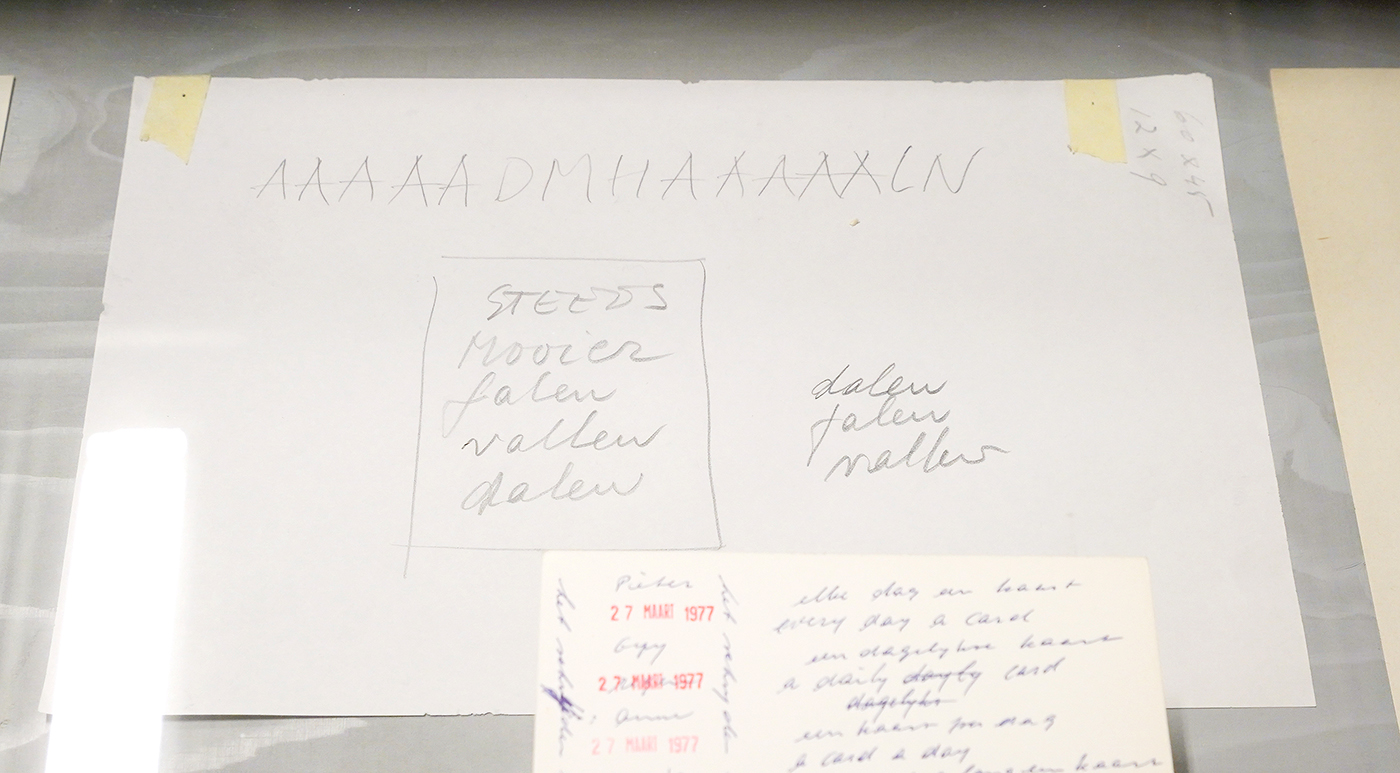 AAAAADMHAAAAAXLN
60 X 45
12 X 9
STEEDS
Mooier
falen
vallen
dalen
dalen
falen
vallen
Pieter
27 MAART 1977
27 MAART 1977
Anne
27 MAART 1977
elke dag een kaart
every day a card
een dagelijkse kaart
a daily card
dagelijks
een kaart per dag
a card a day
kaart